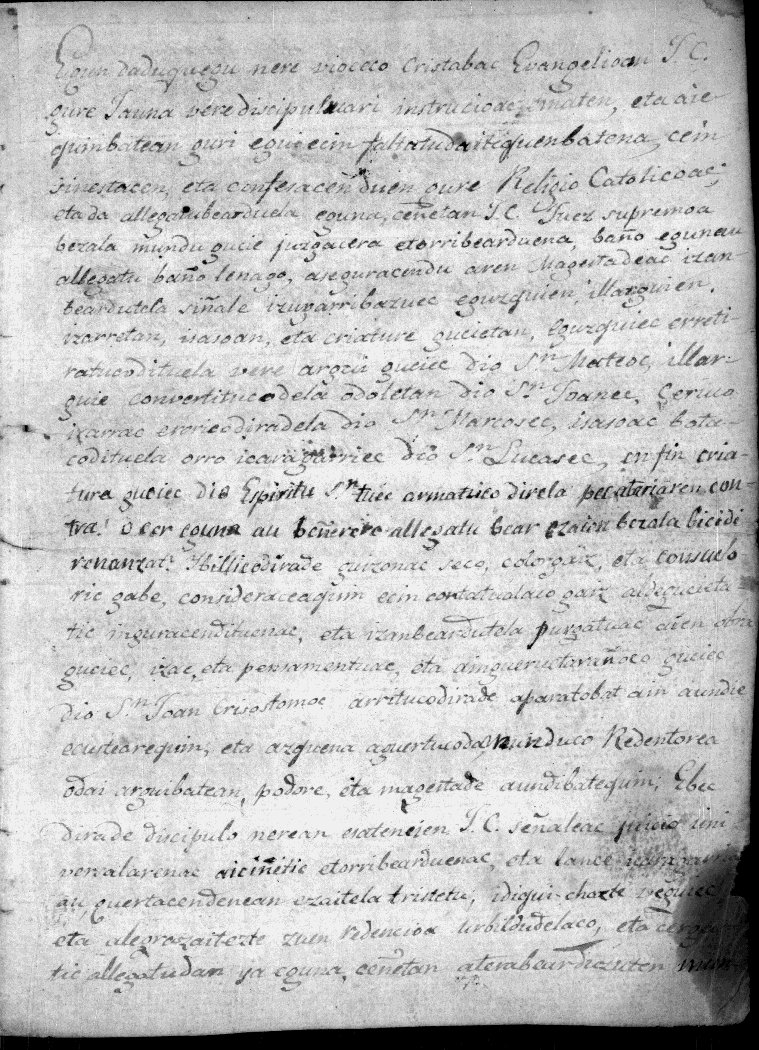 Egun daduquegu nere vioceco Cristabac Evangelioan J. C.
gure Jauna vere discipuluari instrucioac ematen, eta aie
quinbatean guri egui ecin faltatudaitequenbatena, cein
sinestacen, eta confesacen duen gure Religio Catolicoac;
eta da allegatubearduela eguna, ceñetan J. C. Juez supremoa
bezala mundu gucie juzgacera etorribearduena, baño egun au
allegatu baño lenago, aseguracendu aren Magestadeac izan-
beardutela siñale izugarribazuec eguzquien, illarguien,
izarretan, isasoan, eta criature gucietan, Eguzquiec erreti
ratucodituela vere argui guciec dio Sn. Mateoc, illar-
guie convertituco dela odoletan dio Sn. Joanec, Ceruco
izarrac erorico diradela dio Sn. Marcosec, isasoac bota-
codituela orro icaragarriec dio Sn. Lucasec, en fin cria-
tura guciec dio Espiritu Sn.tuec armatuco direla pecatariaren con-
tra. O cer eguna au benerere allegatu bear ezaien bezala bicidi
renanzat. Hillicodirade guizonac seco, colorgaiz, eta consuelo
ric gabe, consideraceaquin ecin contatualaco gaiz aldegucieta
tic inguracendituenac, eta izanbeardutela purgatuac aien obra
guciec, izac, eta pensamentuac, eta ainguerutarañoco guciec
dio Sn. Joan Crisostomoc arritucodirade aparatobat ain aundie
ecustearequin, eta azquena aguertucoda munduco Redentorea
odai arguibatean, podore, eta magestade aundibatequin; Ebec
dirade discipulo nerean esatencien J. C. señaleac juicio uni
versalarenac aiciñetic etorribearduenac, eta lance
au quertacendenean ezaitela tristetu, idiqui chazte veguiec,
eta alegrazaitezte zuen redencioa urbildudelaco, eta
tic allegatudan ya eguna, ceñetan